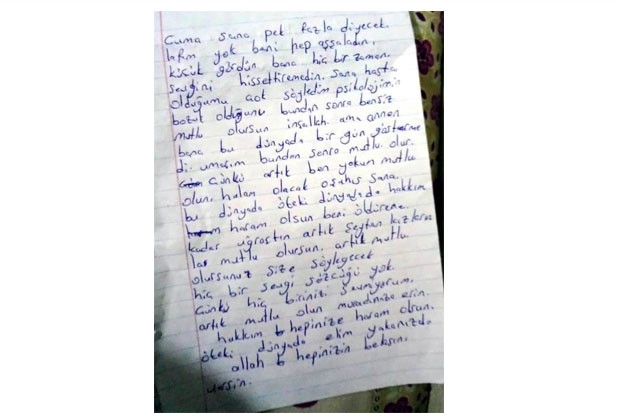 Cuma sana pek fazla diyecek
lafım yok beni hep aşşaladın,
küçük gördün bana hiç bir zaman
sevgini hissettiremedin. Sana hasta
olduğumu çok söyledim psikolojimin
bozuk olduğunu bundan sonra bensiz
mutlu olursun inşallah ama annen
bana bu dünyada bir gün göstermedi
di umarım bundan sonra mutlu olur.
Çünkü artık ben yokum mutlu
olun. halan olacak o şahıs sana.
bu dünyada öteki dünyada hakkım
haram olsun beni öldürene
kadar uğraştın artık şeytan kızlarınla
la mutlu olursun. artık mutlu
olursunuz size söyleyecek
hiç bir sevgi sözcüğü yok
Çünkü hiç birinizi sevmiyorum,
artık mutlu olun muradınıza erin.
hakkım hepinize haram olsun.
öteki dünyada elim yakanızda
allah hepinizin belasını
versin.